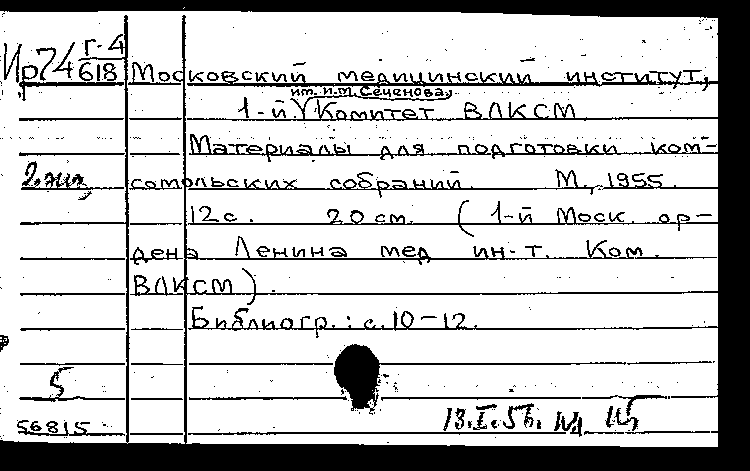 Ир74 Г-4/618 Московский медицинский институт,
им. И.М. Сеченова,
1-й \/ Комитет ВЛКСМ
Материалы для подготовки ком-
2 экз сомольских собраний. М., 1955.
12 с. 20 см. (1-й Моск. ор-
дена Ленина мед ин-т. Ком.
ВЛКСМ).
Библиогр.: с. 10-12.
5
56815 13.I.56.